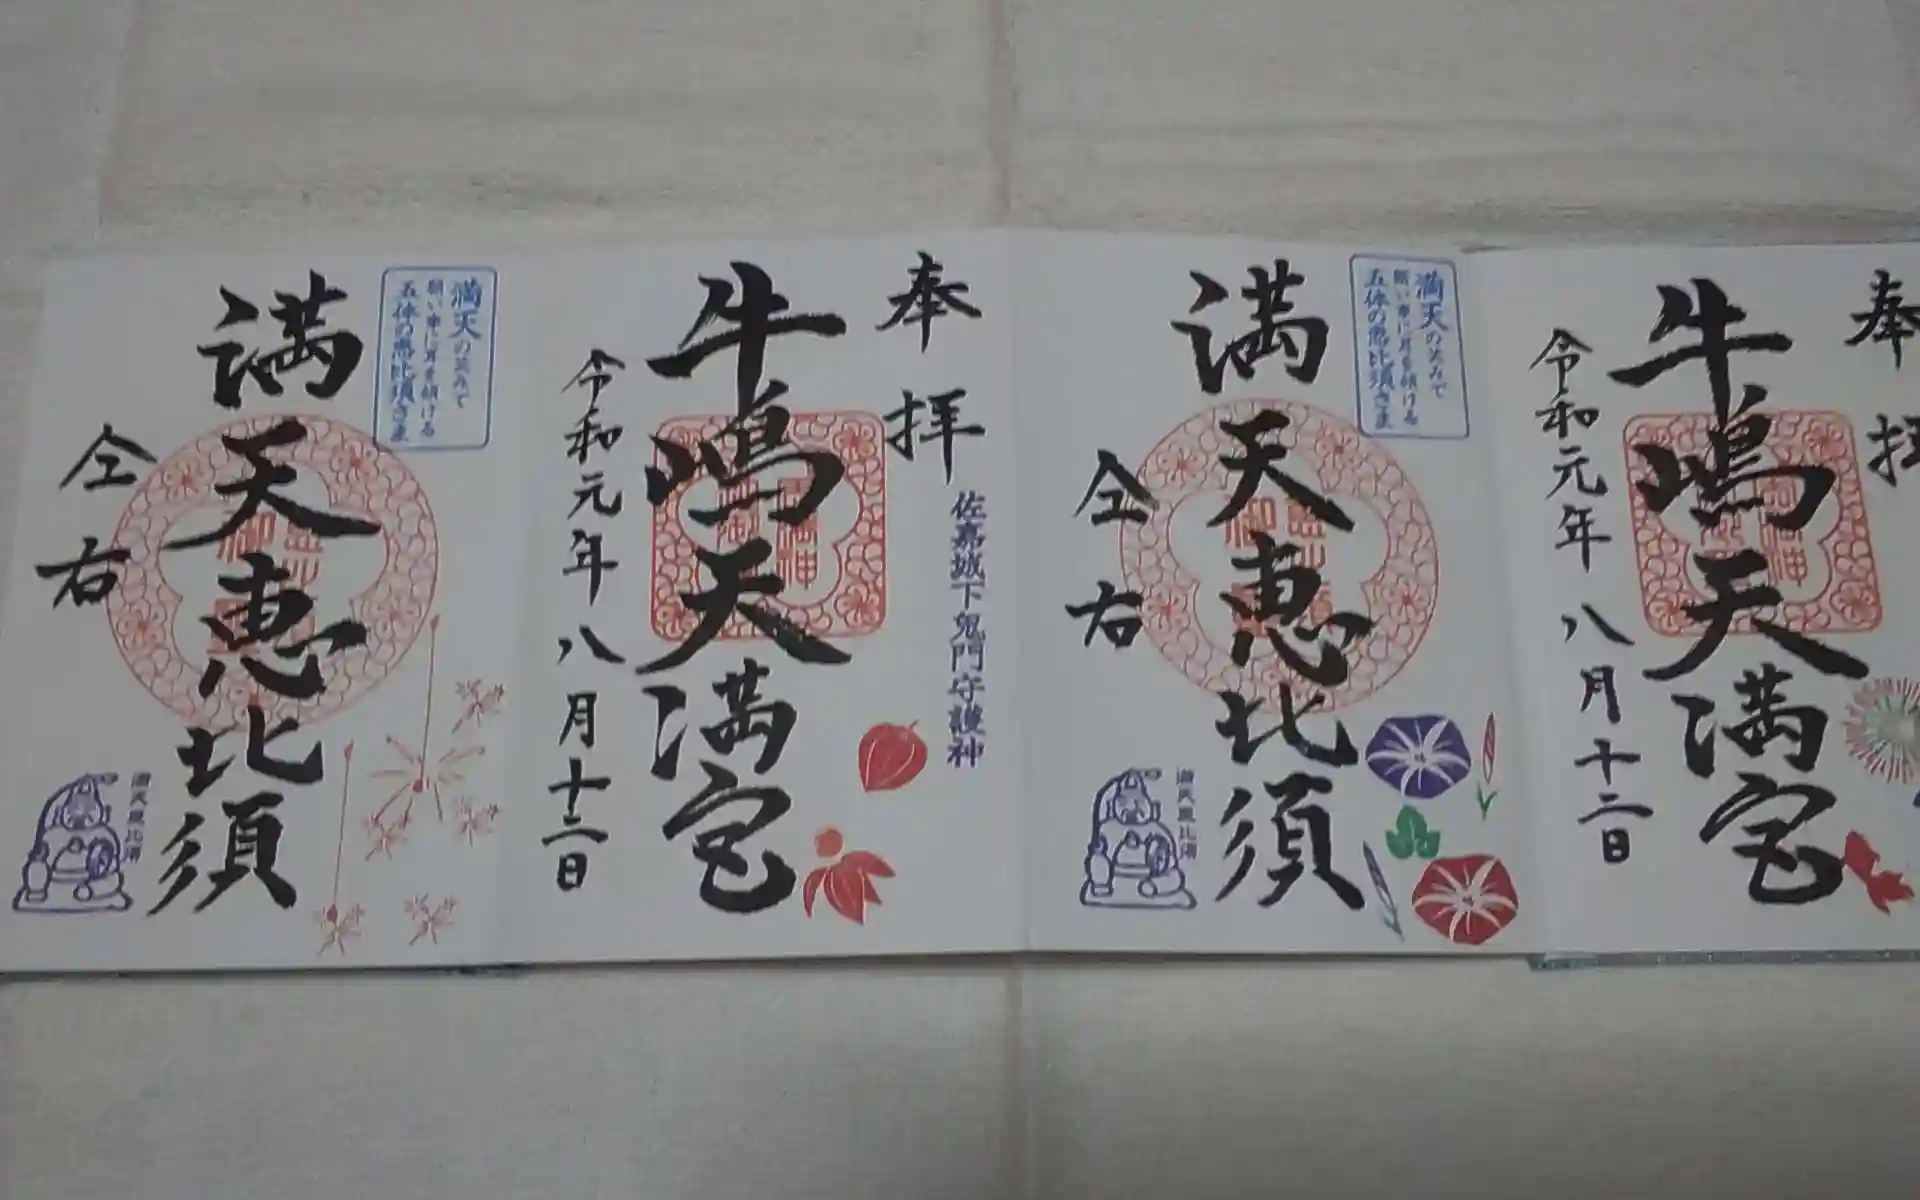 奉拝
牛嶋天満宮
令和元年八月十二日
満天の笑みで
願い事に耳を傾ける
五体の恵比須さま
満天恵比須
仝右
満天恵比須
奉拝
佐嘉城下鬼門守護神
牛嶋天満宮
令和元年八月十二日
満天の笑みで
願い事に耳を傾ける
五体の恵比須さま
満天恵比須
仝右
満天恵比須